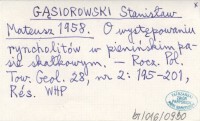 GĄSIOROWSKI Stanisław
Mateusz 1958. O występowaniu
ryncholitów w pienińskim pa-
sie skałkowym. — Rocz. Pol.
Tow. Geol. 28, nr 2: 195–201,
Rés. WHP
bt/016/0930